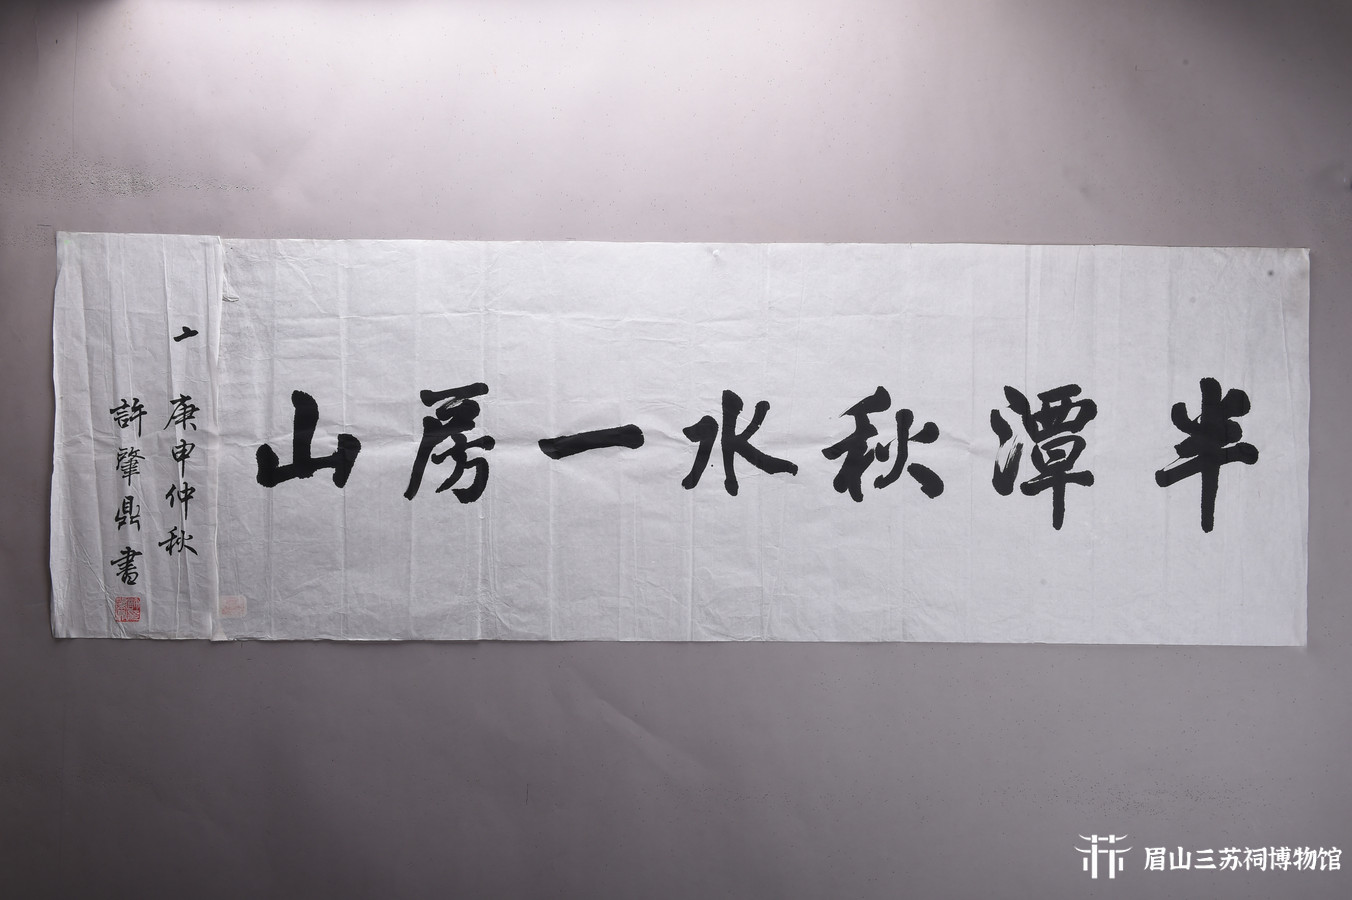 半潭秋水一房山
庚申仲秋
許肇鼎書
眉山三苏祠博物馆